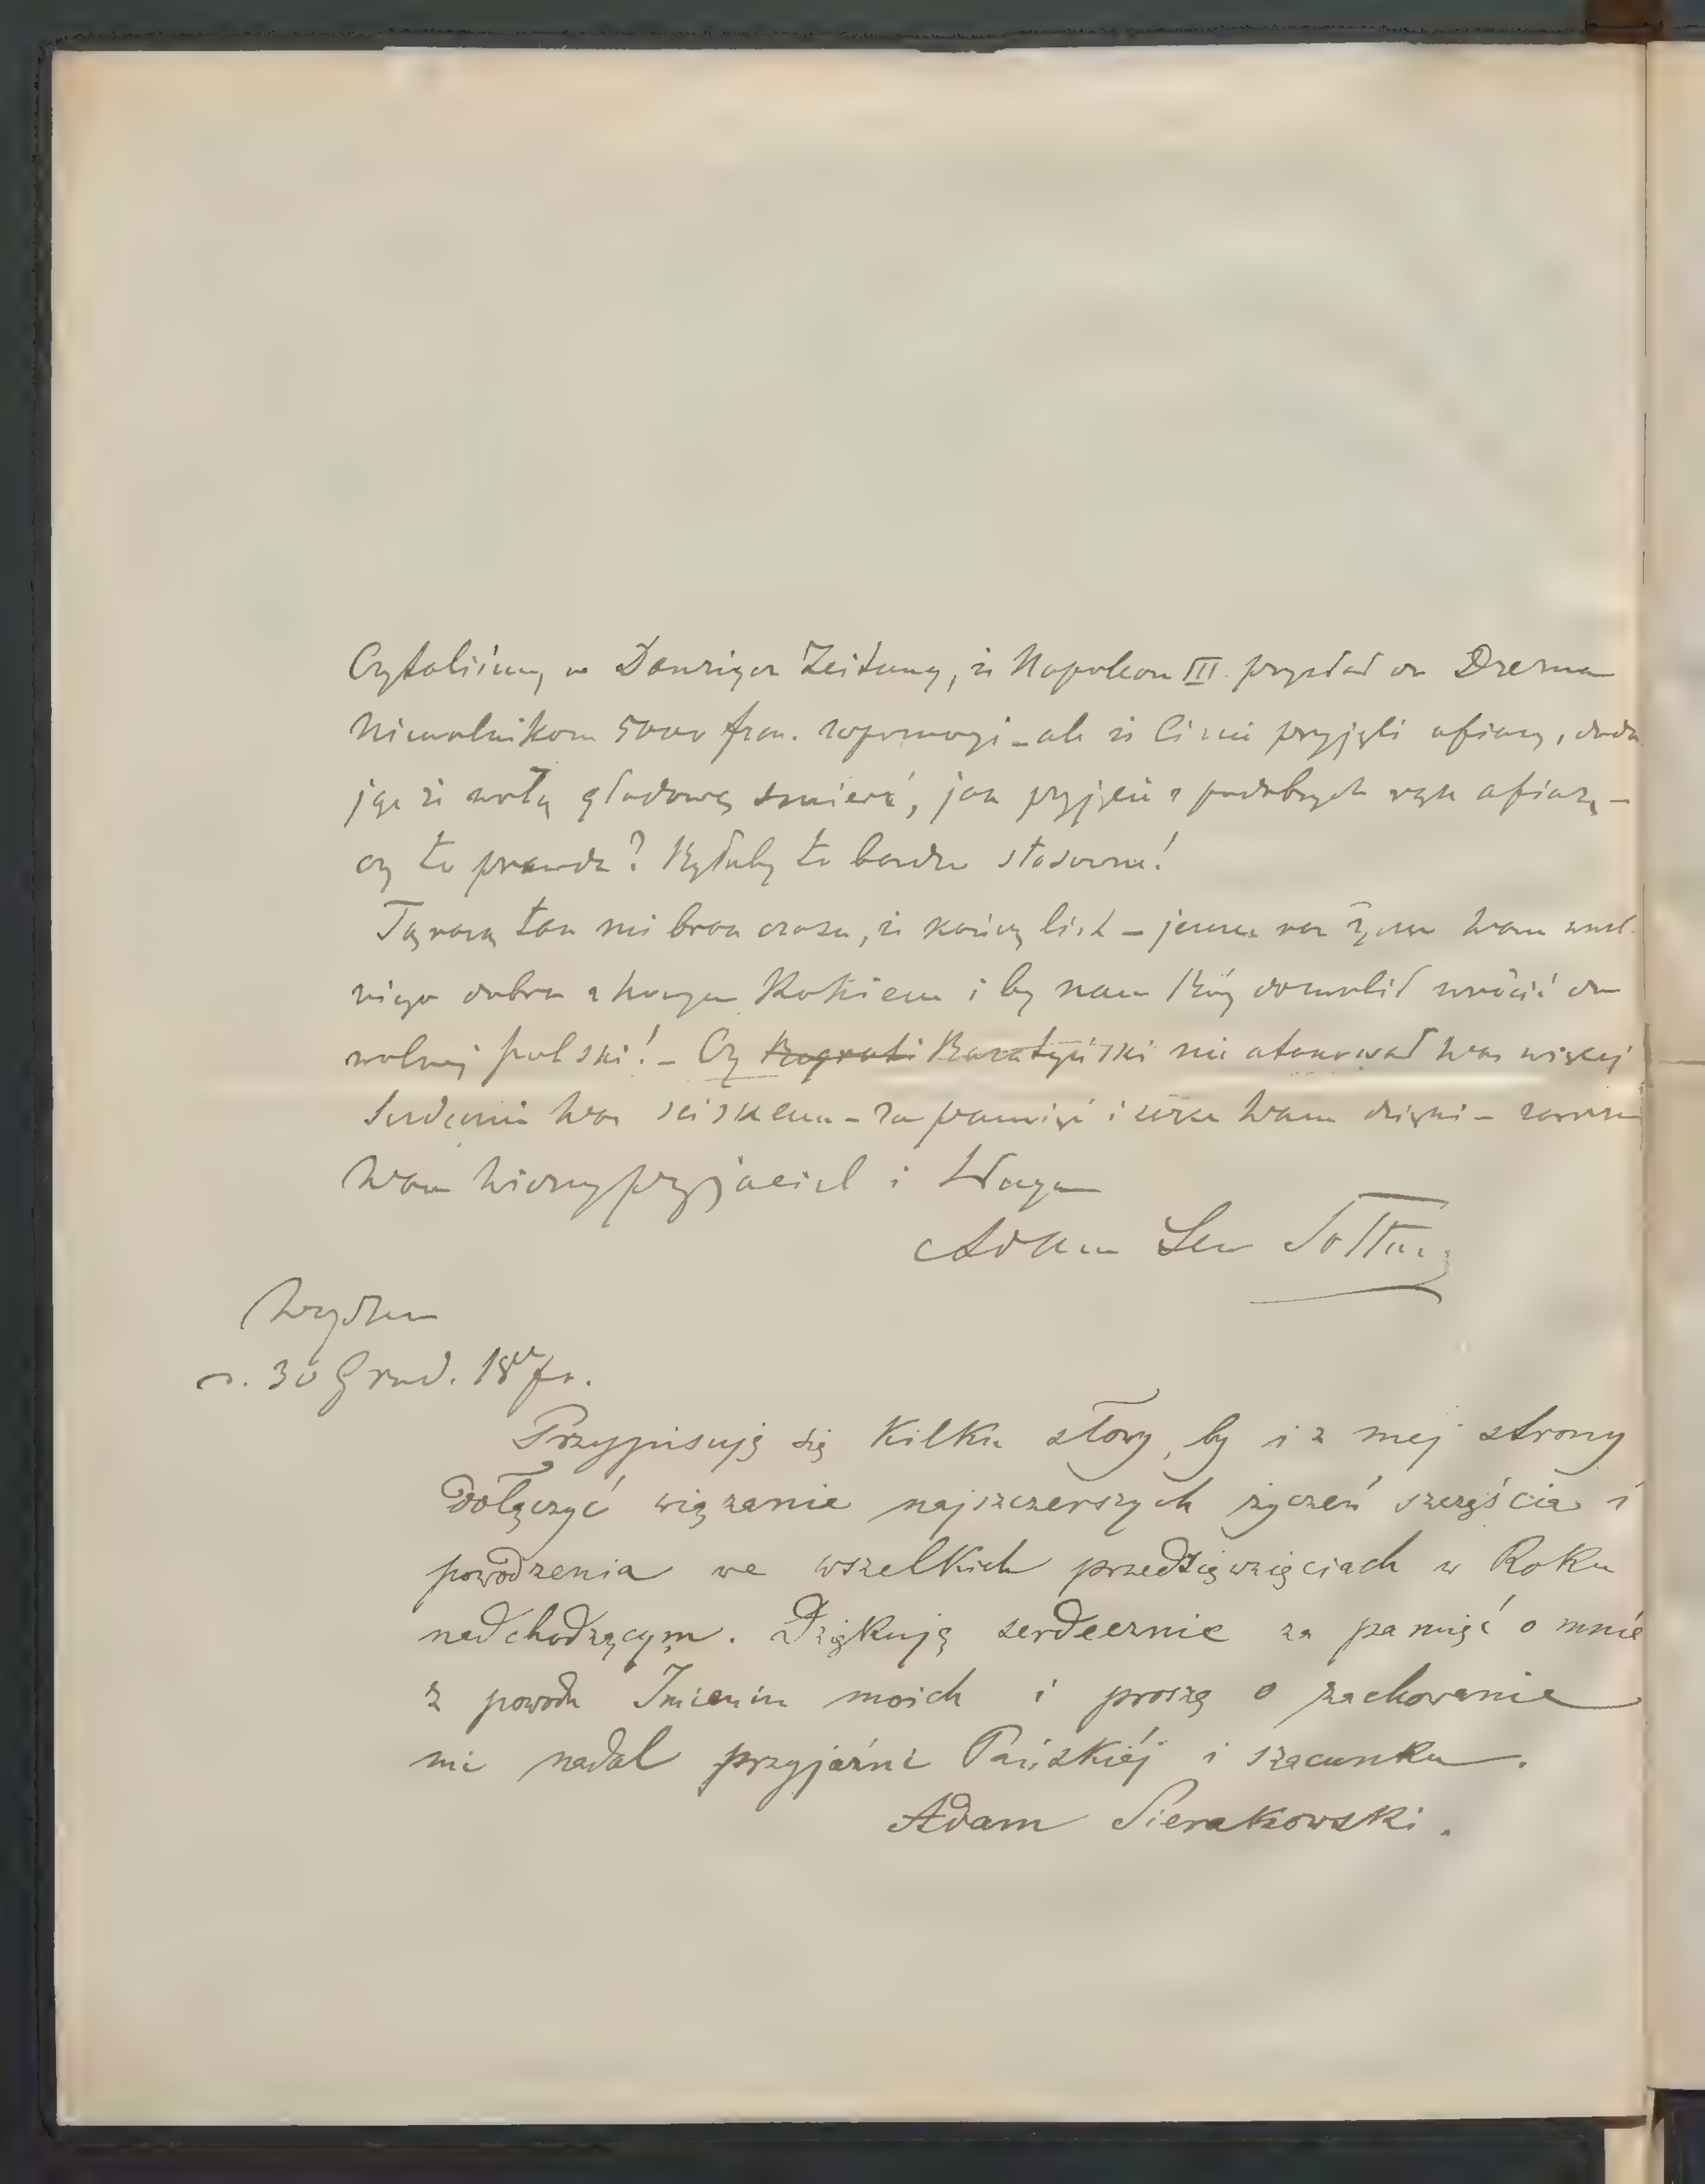 Czytaliśmy w Danziger Zeitung, iż Napoleon III. przysłał do Drezna
Niewolnikom 5000 fran. zapomogi – ale iż Ci nie przyjęli ofiary, doda
jąc iż wolą głodową śmierć, jak przyjęcie z podobnych rąk ofiarę –
czy to prawda? Byłoby to bardzo stosowne!
Tą razą tak mi brak czasu, iż kończę list – jeszcze raz życzę Wam wszel
kiego dobra z Nowym Rokiem i by nam Bóg dozwolił wrócić do
wolnej Polski! – Czy Baratyński nie atakował Was więcej
Serdecznie Was ściskam – za pamięć i serce Wam dzięki – zawsze
Wam Wierny przyjaciel i Sługa
Adam Lew Sołtan
30 Grud. 1870.
Przypisuję się kilku słowy, by i z mej strony
dołączyć wiązanie najszczerszych życzeń szczęścia i
powodzenia we wszelkich przedsięwzięciach w Roku
nadchodzącym. Dziękuję serdecznie za pamięć o mnie
z powodu Imienin moich i proszę o zachowanie
mi nadal przyjaźni Pańskiéj i szacunku.
Adam Sierakowski.